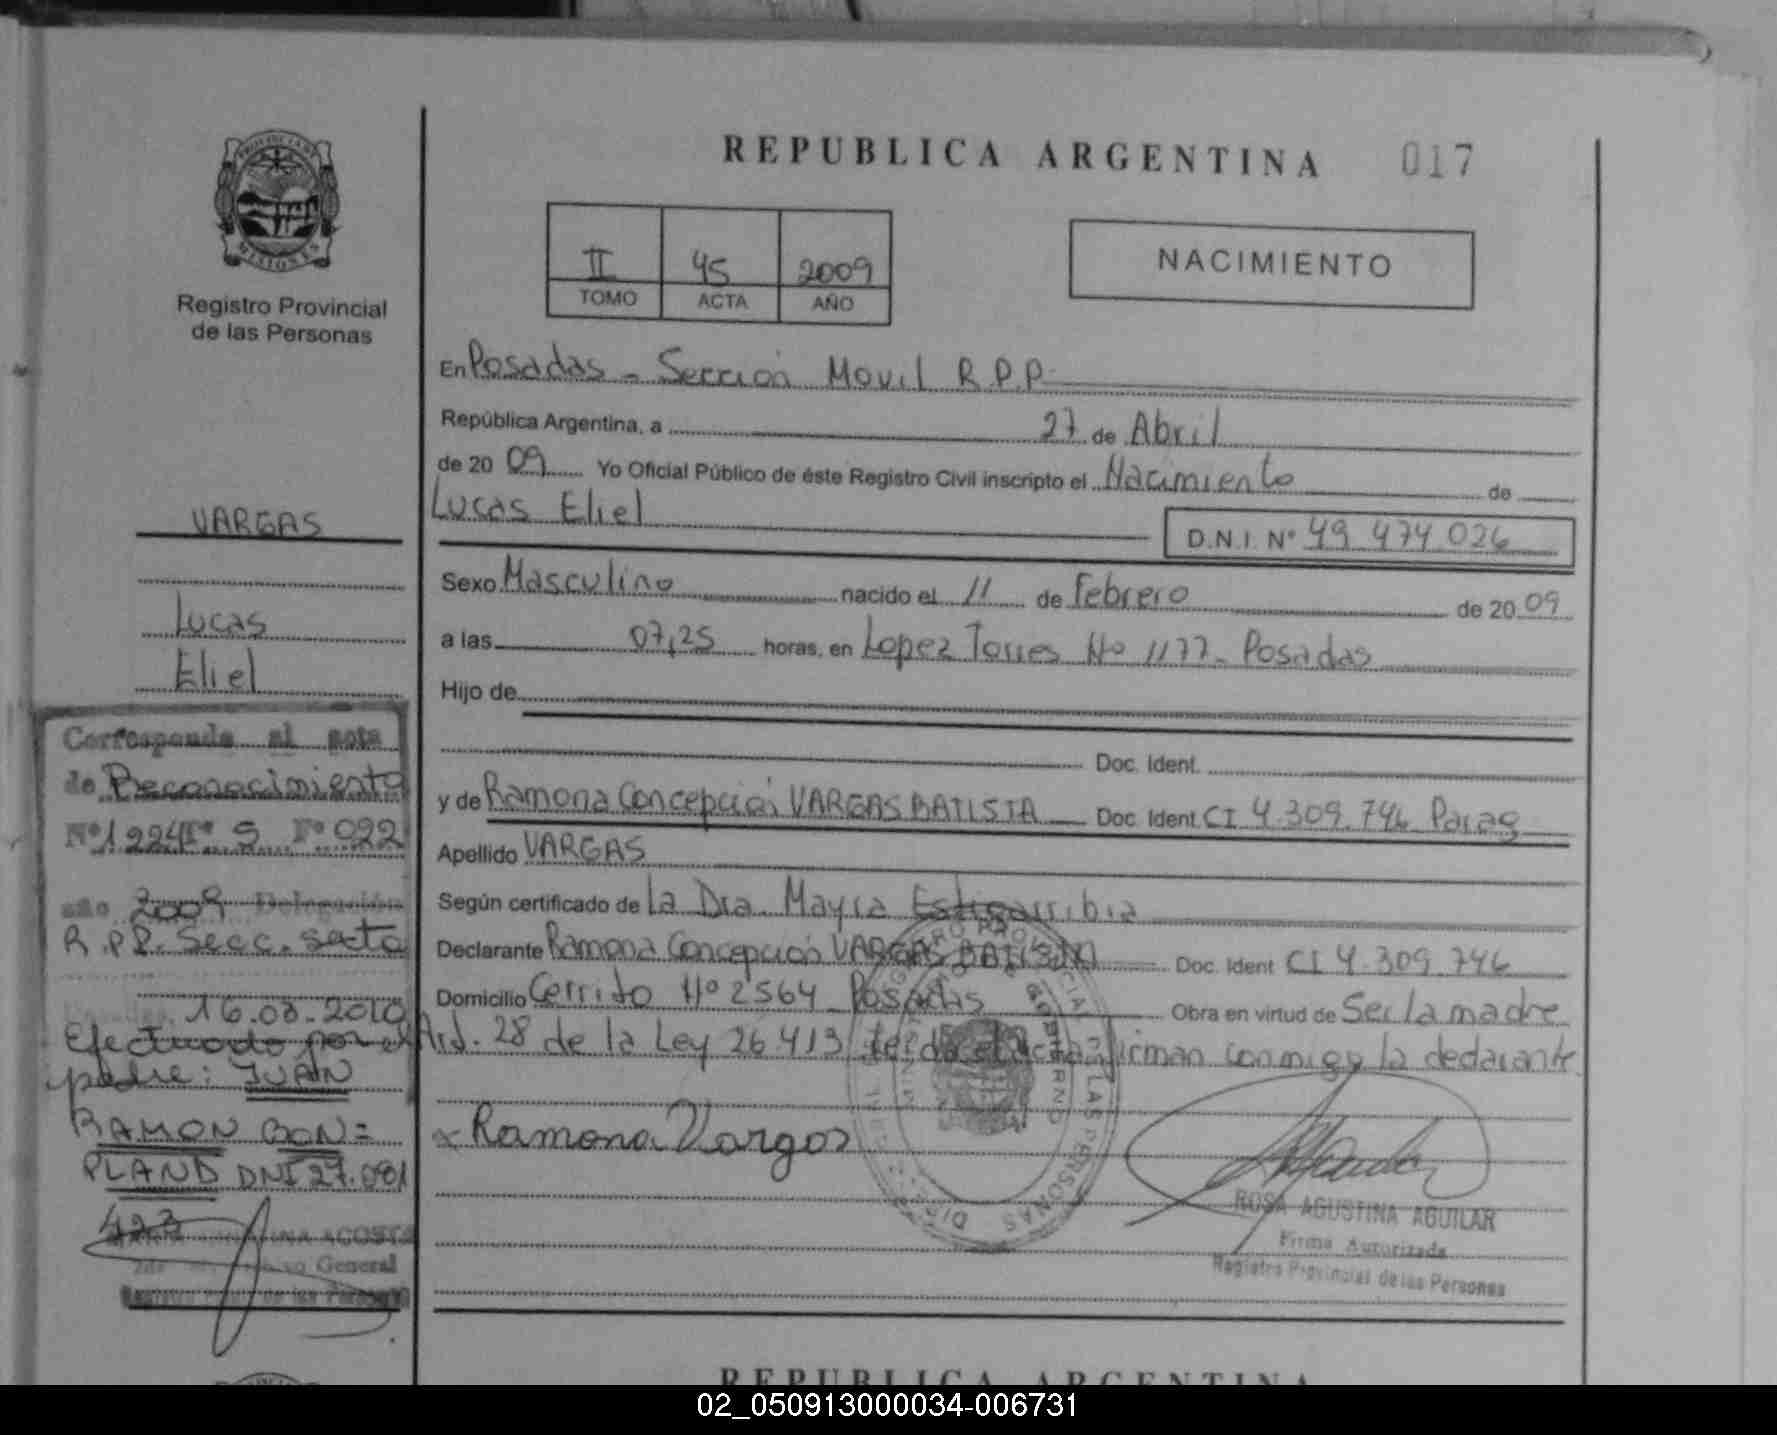 REPUBLICA ARGENTINA 017
PROVINCIA DE MISIONES
Registro Provincial
de las Personas
II 45 2009
TOMO ACTA AÑO
NACIMIENTO
En Posadas - Sección Movil R.P.P.
República Argentina, a 27 de Abril
de 2009 Yo Oficial Público de éste Registro Civil inscripto el Nacimiento de
Lucas Eliel
D.N.I. Nº 49.474.026
Sexo Masculino nacido el 11 de Febrero de 2009
a las 07,25 horas, en Lopez Torres Nº 1177 - Posadas
Hijo de
Doc. Ident.
y de Ramona Concepción VARGAS BATISTA Doc. Ident. CI 4.309.746 Parag
Apellido VARGAS
Según certificado de la Dra. Mayra Estigarribia
Declarante Ramona Concepción VARGAS BATISTA Doc. Ident CI 4.309.746
Domicilio Cerrito Nº 2564 Posadas Obra en virtud de Ser la madre
Art. 28 de la Ley 26413 leída el acta firman conmigo la declarante
x Ramona Vargas
ROSA AGUSTINA AGUILAR
Firma Autorizada
Registro Provincial de las Personas
VARGAS
Lucas
Eliel
Corresponde al acta
de Reconocimiento
Nº 1224 Tº 5 Fº 022
año 2009 Delegación
R.P.P. Secc. sexta
16.03.2010
Efectuado por el
padre: JUAN
RAMON BON=
PLAND DNI 27.081
423
ACOSTA
General
REPUBLICA ARGENTINA
02_050913000034-006731